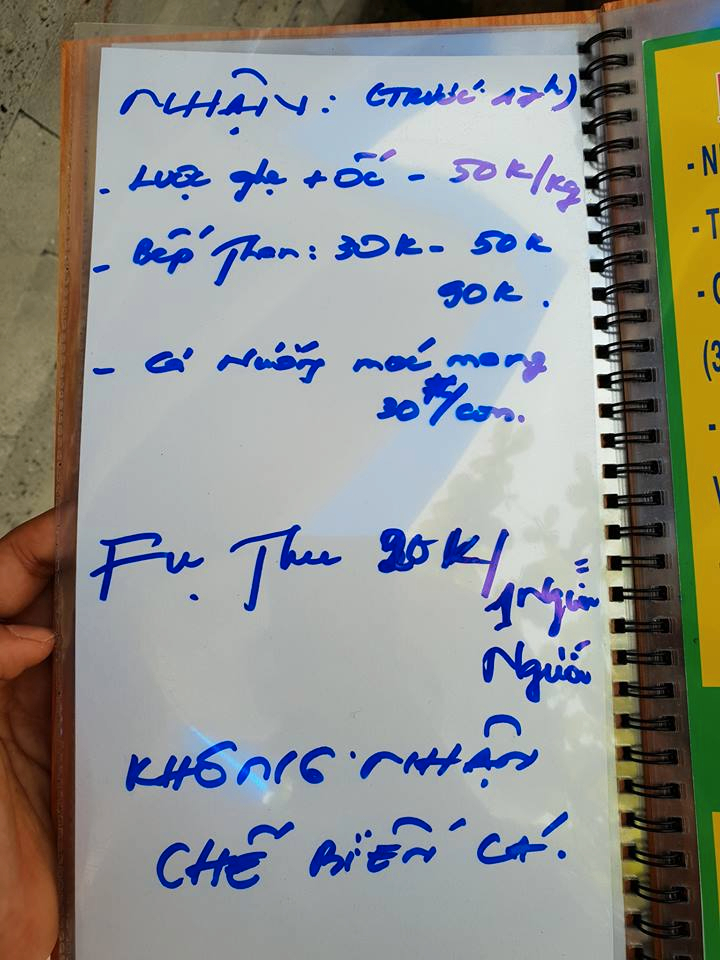 NHẬN: (TRƯỚC 17h)
- Luộc ghẹ + ốc - 50K/kg
- Bếp Than: 30K - 50K
90K.
- Cá Nướng mọi mang
30K/con.
Fụ Thu 20K/
1 Người
Người
KHÔNG NHẬN
CHẾ BIẾN CÁ.
- N
- T
- C
(3
-
V